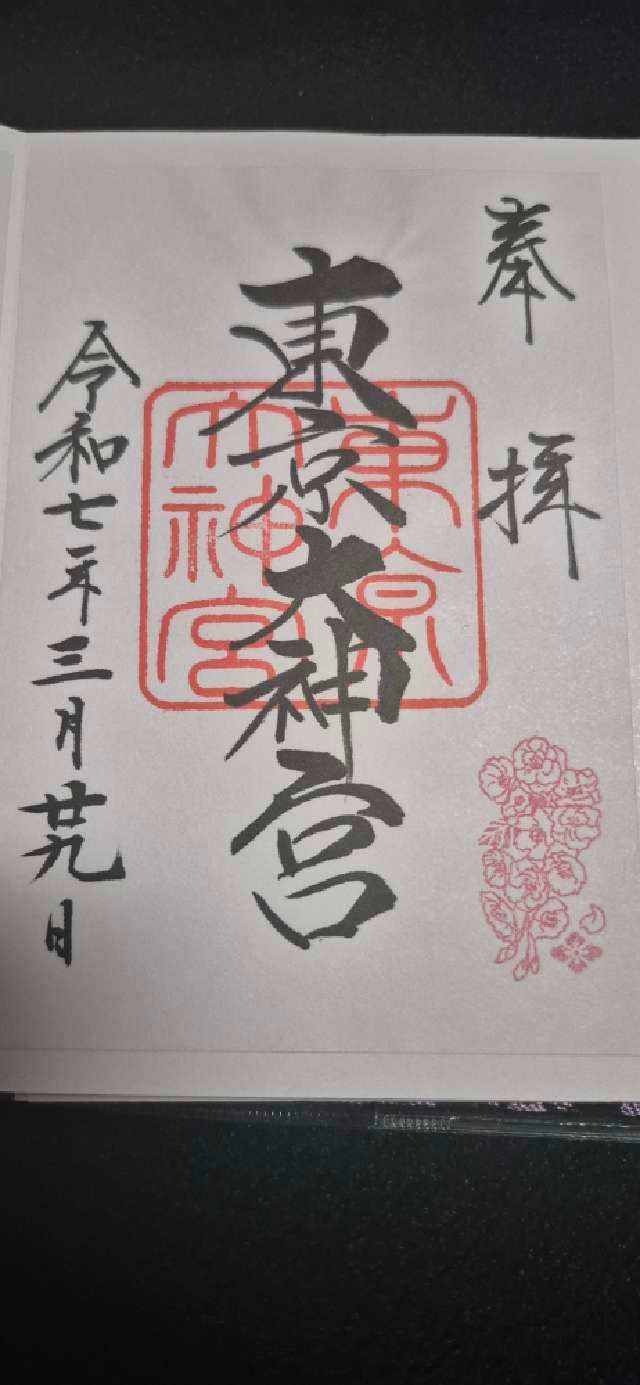 奉拝
東京大神宮
東京大神宮
令和七年三月廿九日